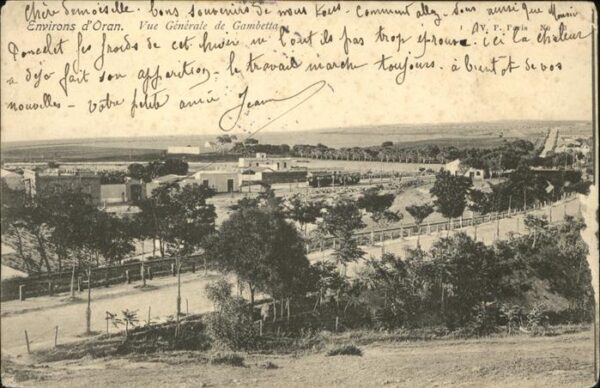 Chère demoiselle. Bons souvenirs de nous tous. Comment allez-vous ainsi que
Environs d'Oran. Vue Générale de Gambetta
V. P. Paris No
Poncelet les froids de cet hiver ne l'ont ils pas trop éprouvé. ici la chaleur
a déjà fait son apparition. le travail marche toujours. à bientôt de vos
nouvelles - votre petite amie Jeanne